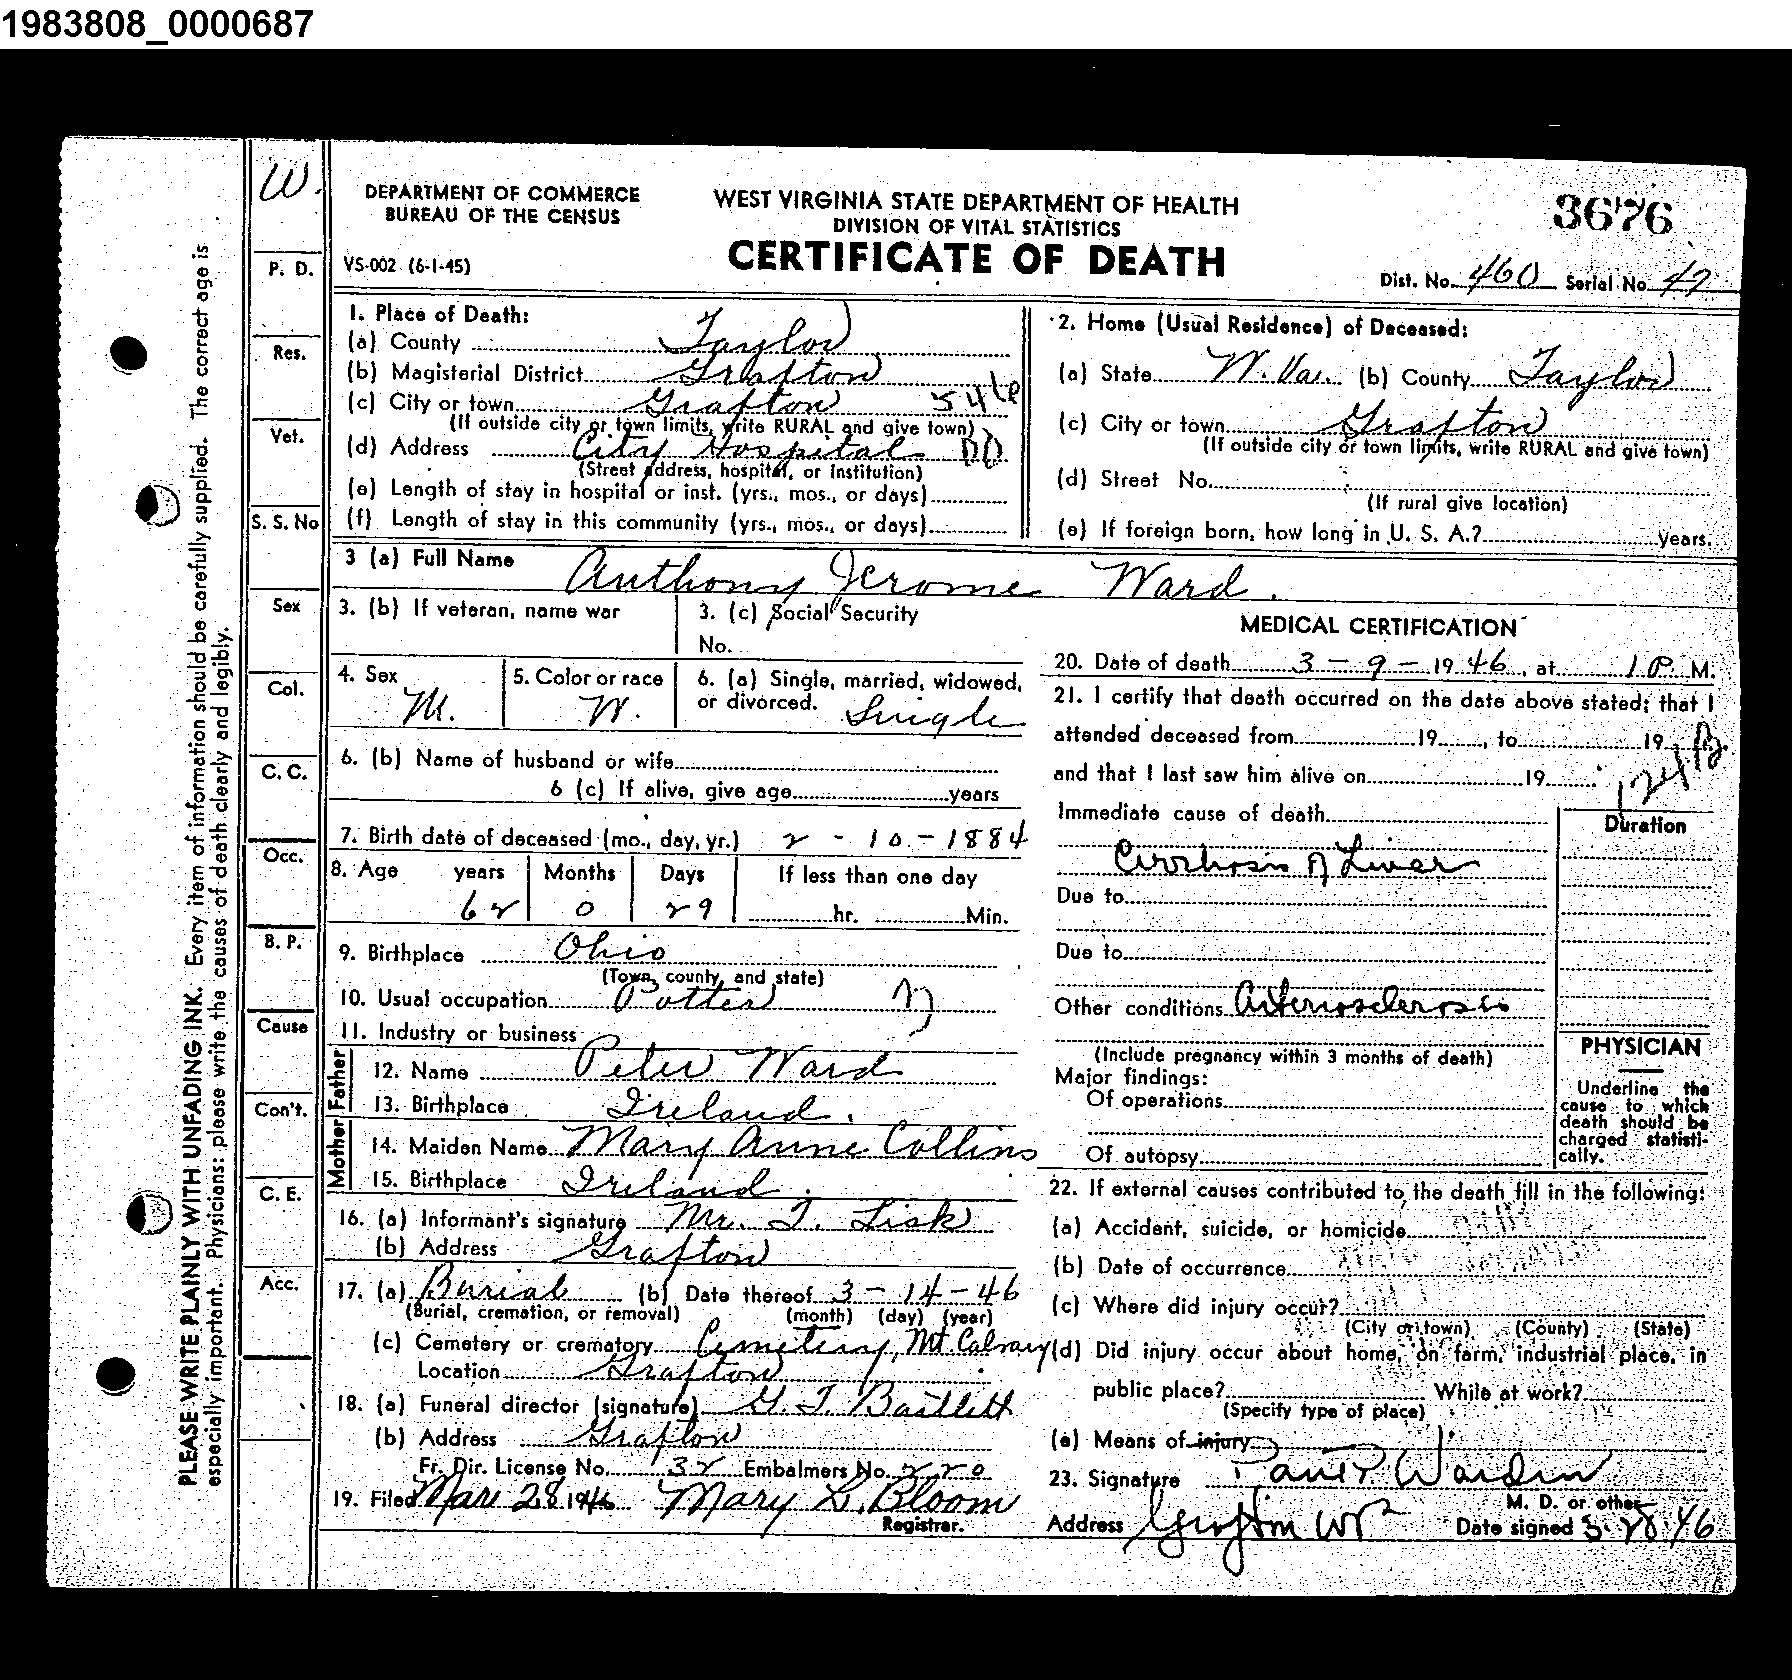 1983808_0000687
W.
DEPARTMENT OF COMMERCE
BUREAU OF THE CENSUS
VS-002 (6-1-45)
WEST VIRGINIA STATE DEPARTMENT OF HEALTH
DIVISION OF VITAL STATISTICS
CERTIFICATE OF DEATH
3676
Dist. No. 460 Serial No. 47
PLEASE WRITE PLAINLY WITH UNFADING INK. Every item of information should be carefully supplied. The correct age is
especially important. Physicians: please write the causes of death clearly and legibly.
P. D.
Res.
Vet.
S. S. No
Sex
Col.
C. C.
Occ.
B. P.
Cause
Con't.
C. E.
Acc.
1. Place of Death:
(a) County Taylor
(b) Magisterial District Grafton
(c) City or town Grafton
(If outside city or town limits, write RURAL and give town)
(d) Address City Hospital
(Street address, hospital, or institution)
(e) Length of stay in hospital or inst. (yrs., mos., or days)
(f) Length of stay in this community (yrs., mos., or days)
2. Home (Usual Residence) of Deceased:
(a) State W. Va. (b) County Taylor
(c) City or town Grafton
(If outside city or town limits, write RURAL and give town)
(d) Street No.
(If rural give location)
(e) If foreign born, how long in U. S. A.? years.
3 (a) Full Name Anthony Jerome Ward.
3. (b) If veteran, name war
3. (c) Social Security
No.
4. Sex M.
5. Color or race W.
6. (a) Single, married, widowed,
or divorced. Single
6. (b) Name of husband or wife
6 (c) If alive, give age years
7. Birth date of deceased (mo., day, yr.) 2 - 10 - 1884
8. Age years Months Days If less than one day
62 0 29 hr. Min.
9. Birthplace Ohio
(Town, county, and state)
10. Usual occupation Potter
11. Industry or business
Father
12. Name Peter Ward
13. Birthplace Ireland.
Mother
14. Maiden Name Mary Anne Collins
15. Birthplace Ireland.
16. (a) Informant's signature Mr. T. Lisk
(b) Address Grafton
17. (a) Burial (b) Date thereof 3 - 14 - 46
(Burial, cremation, or removal) (month) (day) (year)
(c) Cemetery or crematory Cemetery, Mt Calvary
Location Grafton
18. (a) Funeral director (signature) G. T. Bartlett
(b) Address Grafton
Fr. Dir. License No. 32 Embalmers No. 220
19. Filed Mar 28 1946 Mary L. Bloom
Registrar.
MEDICAL CERTIFICATION
20. Date of death 3 - 9 - 1946, at 1 P. M.
21. I certify that death occurred on the date above stated; that I
attended deceased from 19 , to 19
and that I last saw him alive on 19
Immediate cause of death
Duration
Cirrhosis of Liver
Due to
Due to
Other conditions Arteriosclerosis
(Include pregnancy within 3 months of death)
Major findings:
Of operations
Of autopsy
PHYSICIAN
Underline the
cause to which
death should be
charged statisti-
cally.
22. If external causes contributed to the death fill in the following:
(a) Accident, suicide, or homicide
(b) Date of occurrence
(c) Where did injury occur?
(City or town) (County) (State)
(d) Did injury occur about home, on farm, industrial place, in
public place? While at work?
(Specify type of place)
(e) Means of injury
23. Signature Paul P. Warden
M. D. or other
Address Grafton W Va Date signed 3-28-46